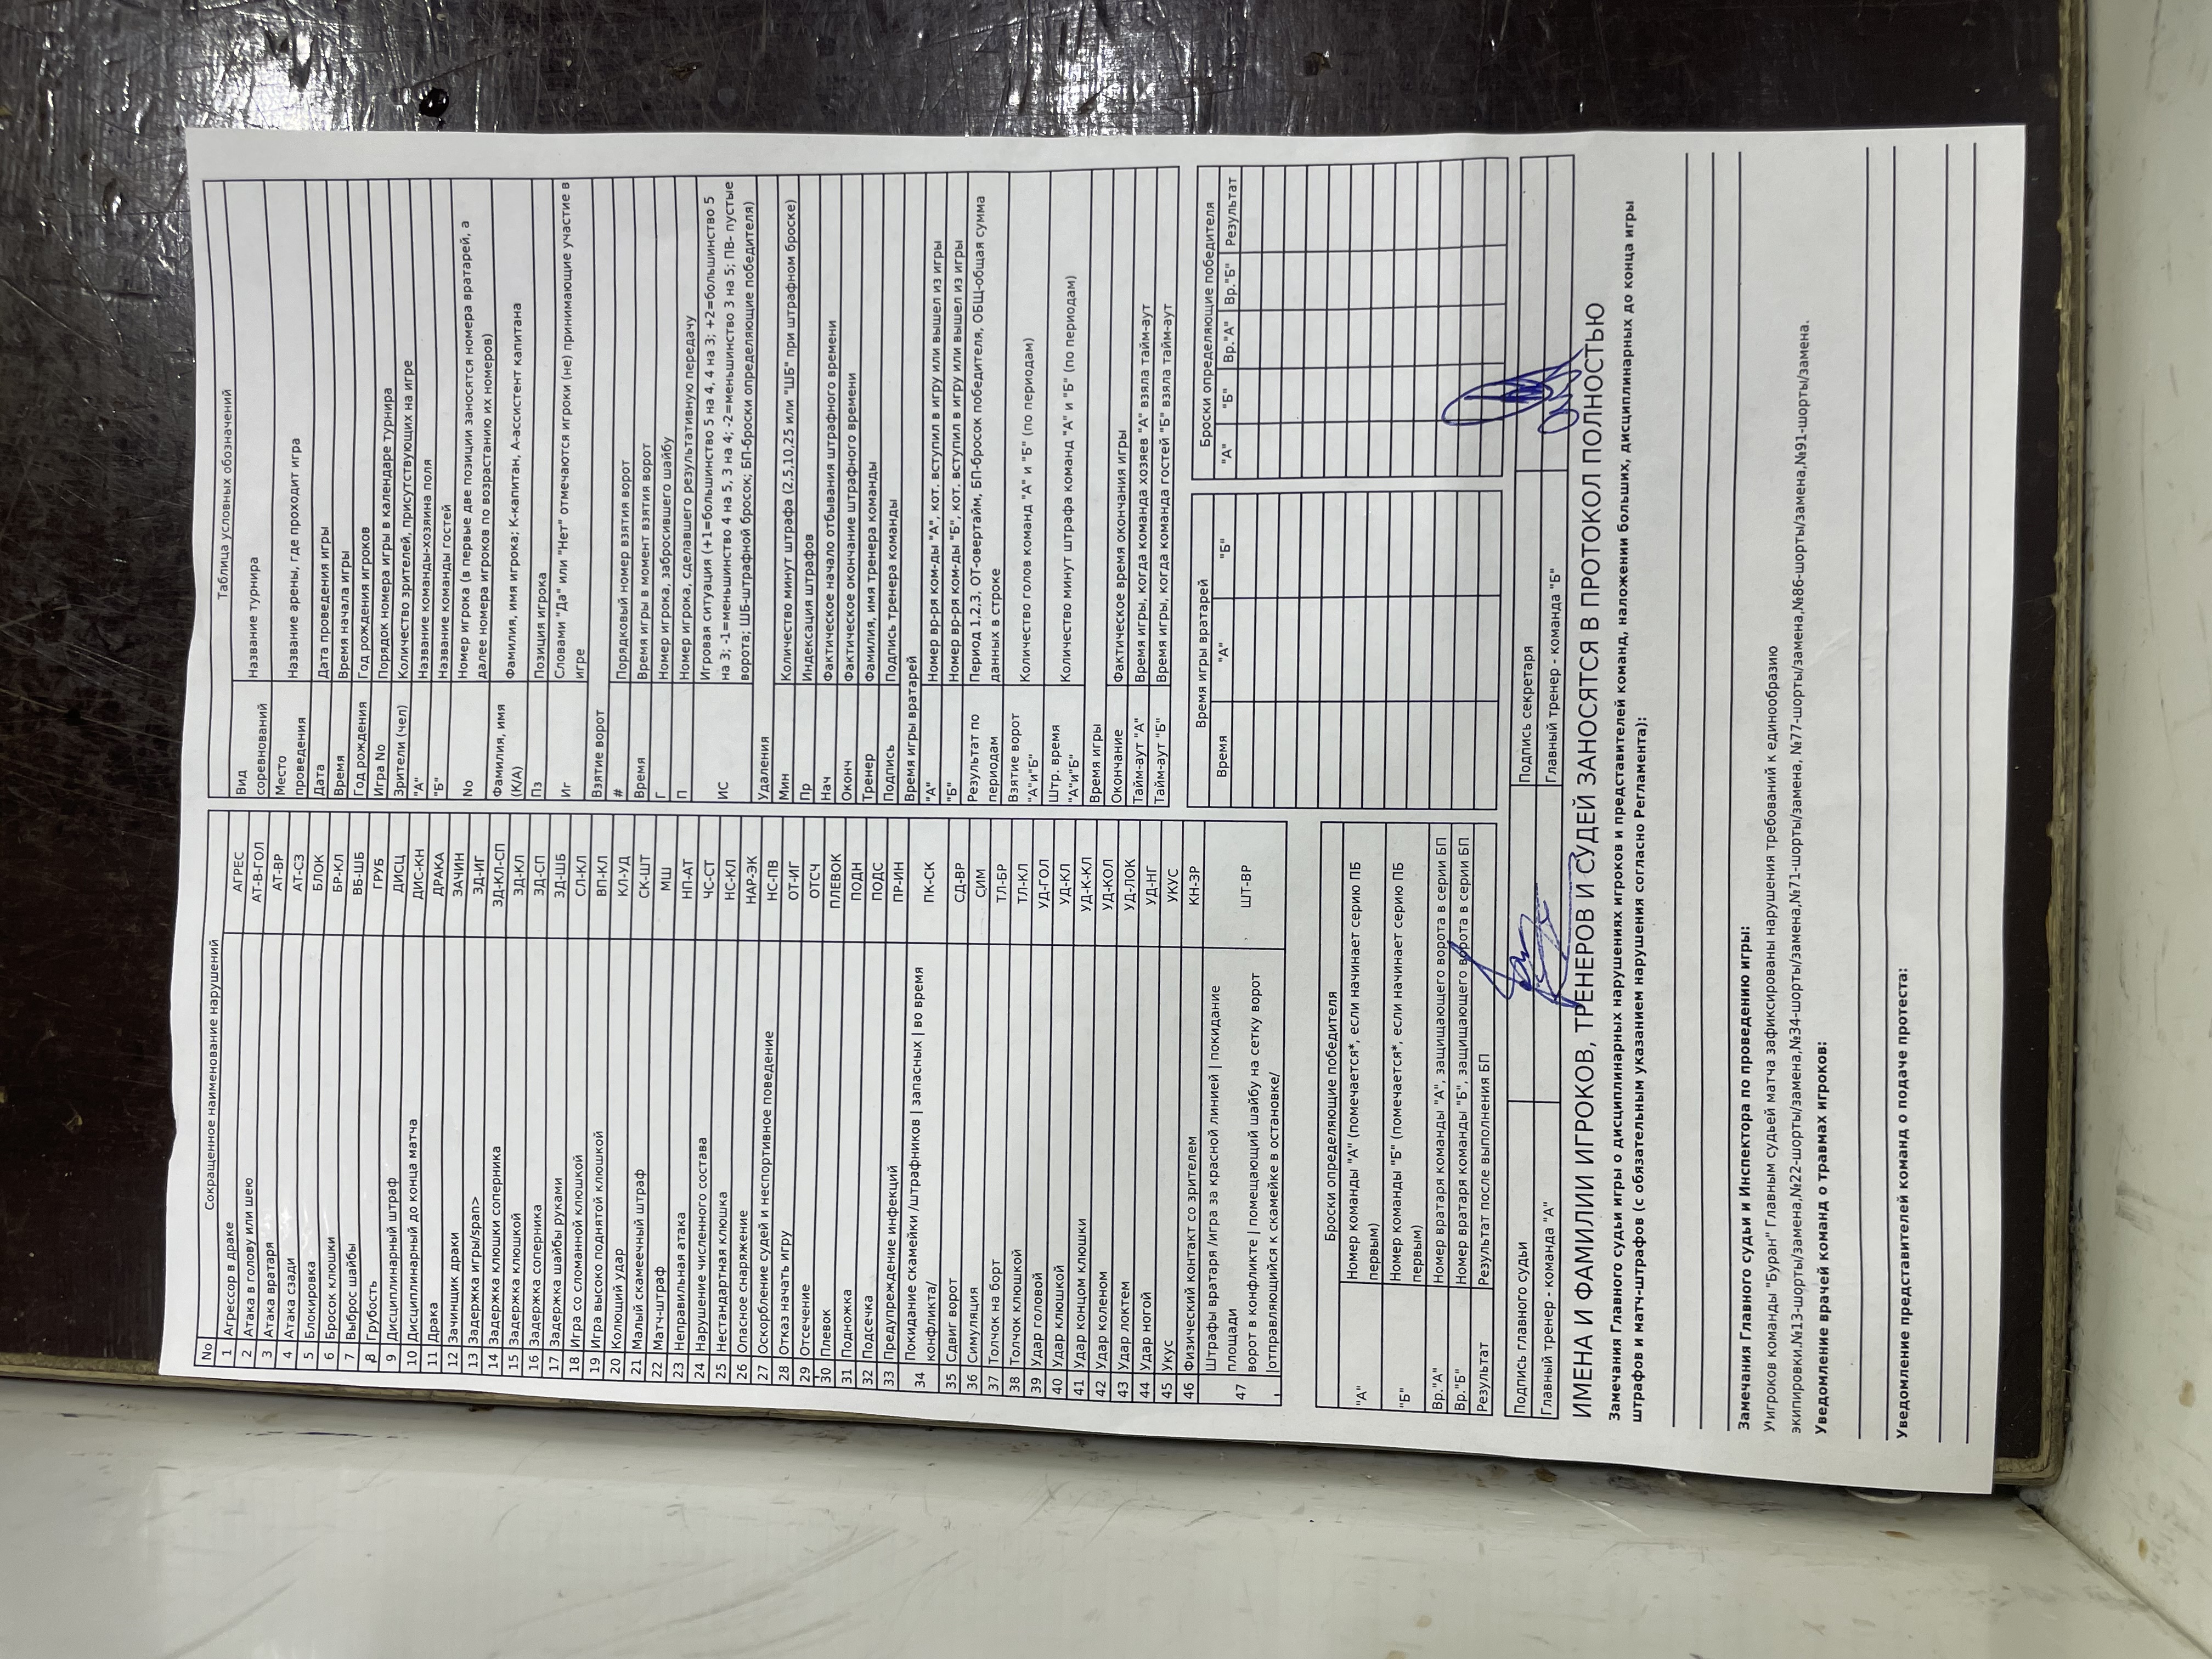 Сокращенное наименование нарушений
No
1 Агрессор в драке АГРЕС
2 Атака в голову или шею АТ-В-ГОЛ
3 Атака вратаря АТ-ВР
4 Атака сзади АТ-СЗ
5 Блокировка БЛОК
6 Бросок клюшки БР-КЛ
7 Выброс шайбы ВБ-ШБ
8 Грубость ГРУБ
9 Дисциплинарный штраф ДИСЦ
10 Дисциплинарный до конца матча ДИС-КН
11 Драка ДРАКА
12 Зачинщик драки ЗАЧИН
13 Задержка игры/span> ЗД-ИГ
14 Задержка клюшки соперника ЗД-КЛ-СП
15 Задержка клюшкой ЗД-КЛ
16 Задержка соперника ЗД-СП
17 Задержка шайбы руками ЗД-ШБ
18 Игра со сломанной клюшкой СЛ-КЛ
19 Игра высоко поднятой клюшкой ВП-КЛ
20 Колющий удар КЛ-УД
21 Малый скамеечный штраф СК-ШТ
22 Матч-штраф МШ
23 Неправильная атака НП-АТ
24 Нарушение численного состава ЧС-СТ
25 Нестандартная клюшка НС-КЛ
26 Опасное снаряжение НАР-ЭК
27 Оскорбление судей и неспортивное поведение НС-ПВ
28 Отказ начать игру ОТ-ИГ
29 Отсечение ОТСЧ
30 Плевок ПЛЕВОК
31 Подножка ПОДН
32 Подсечка ПОДС
33 Предупреждение инфекций ПР-ИН
34 Покидание скамейки /штрафников | запасных | во время
конфликта/ ПК-СК
35 Сдвиг ворот СД-ВР
36 Симуляция СИМ
37 Толчок на борт ТЛ-БР
38 Толчок клюшкой ТЛ-КЛ
39 Удар головой УД-ГОЛ
40 Удар клюшкой УД-КЛ
41 Удар концом клюшки УД-К-КЛ
42 Удар коленом УД-КОЛ
43 Удар локтем УД-ЛОК
44 Удар ногой УД-НГ
45 Укус УКУС
46 Физический контакт со зрителем КН-ЗР
47 Штрафы вратаря /игра за красной линией | покидание
площади
ворот в конфликте | помещающий шайбу на сетку ворот
|отправляющийся к скамейке в остановке/ ШТ-ВР
Таблица условных обозначений
Вид
соревнований Название турнира
Место
проведения Название арены, где проходит игра
Дата Дата проведения игры
Время Время начала игры
Год рождения Год рождения игроков
Игра No Порядок номера игры в календаре турнира
Зрители (чел) Количество зрителей, присутствующих на игре
"А" Название команды-хозяина поля
"Б" Название команды гостей
No Номер игрока (в первые две позиции заносятся номера вратарей, а
далее номера игроков по возрастанию их номеров)
Фамилия, имя
(К/А) Фамилия, имя игрока; К-капитан, А-ассистент капитана
Пз Позиция игрока
Иг Словами "Да" или "Нет" отмечаются игроки (не) принимающие участие в
игре
Взятие ворот
# Порядковый номер взятия ворот
Время Время игры в момент взятия ворот
Г Номер игрока, забросившего шайбу
П Номер игрока, сделавшего результативную передачу
ИС Игровая ситуация (+1=большинство 5 на 4, 4 на 3; +2=большинство 5
на 3; -1=меньшинство 4 на 5, 3 на 4; -2=меньшинство 3 на 5; ПВ- пустые
ворота; ШБ-штрафной бросок; БП-броски определяющие победителя)
Удаления
Мин Количество минут штрафа (2,5,10,25 или "ШБ" при штрафном броске)
Пр Индексация штрафов
Нач Фактическое начало отбывания штрафного времени
Оконч Фактическое окончание штрафного времени
Тренер Фамилия, имя тренера команды
Подпись Подпись тренера команды
Время игры вратарей
"А" Номер вр-ря ком-ды "А", кот. вступил в игру или вышел из игры
"Б" Номер вр-ря ком-ды "Б", кот. вступил в игру или вышел из игры
Результат по
периодам Период 1,2,3, ОТ-овертайм, БП-бросок победителя, ОБЩ-общая сумма
данных в строке
Взятие ворот
"А"и"Б" Количество голов команд "А" и "Б" (по периодам)
Штр. время
"А"и"Б" Количество минут штрафа команд "А" и "Б" (по периодам)
Время игры
Окончание Фактическое время окончания игры
Тайм-аут "А" Время игры, когда команда хозяев "А" взяла тайм-аут
Тайм-аут "Б" Время игры, когда команда гостей "Б" взяла тайм-аут
Броски определяющие победителя
"А" Номер команды "А" (помечается*, если начинает серию ПБ
первым)
"Б" Номер команды "Б" (помечается*, если начинает серию ПБ
первым)
Вр."А" Номер вратаря команды "А", защищающего ворота в серии БП
Вр."Б" Номер вратаря команды "Б", защищающего ворота в серии БП
Результат Результат после выполнения БП
Время игры вратарей
Время "А" "Б"
Броски определяющие победителя
"А" "Б" Вр."А" Вр."Б" Результат
Подпись главного судьи Подпись секретаря
Главный тренер - команда "А" Главный тренер - команда "Б"
ИМЕНА И ФАМИЛИИ ИГРОКОВ, ТРЕНЕРОВ И СУДЕЙ ЗАНОСЯТСЯ В ПРОТОКОЛ ПОЛНОСТЬЮ
Замечания Главного судьи игры о дисциплинарных нарушениях игроков и представителей команд, наложении больших, дисциплинарных до конца игры
штрафов и матч-штрафов (с обязательным указанием нарушения согласно Регламента):
Замечания Главного судьи и Инспектора по проведению игры:
У игроков команды "Буран" Главным судьей матча зафиксированы нарушения требований к единообразию
экипировки.№13-шорты/замена,№22-шорты/замена,№34-шорты/замена,№71-шорты/замена, №77-шорты/замена,№86-шорты/замена,№91-шорты/замена.
Уведомление врачей команд о травмах игроков:
Уведомление представителей команд о подаче протеста: